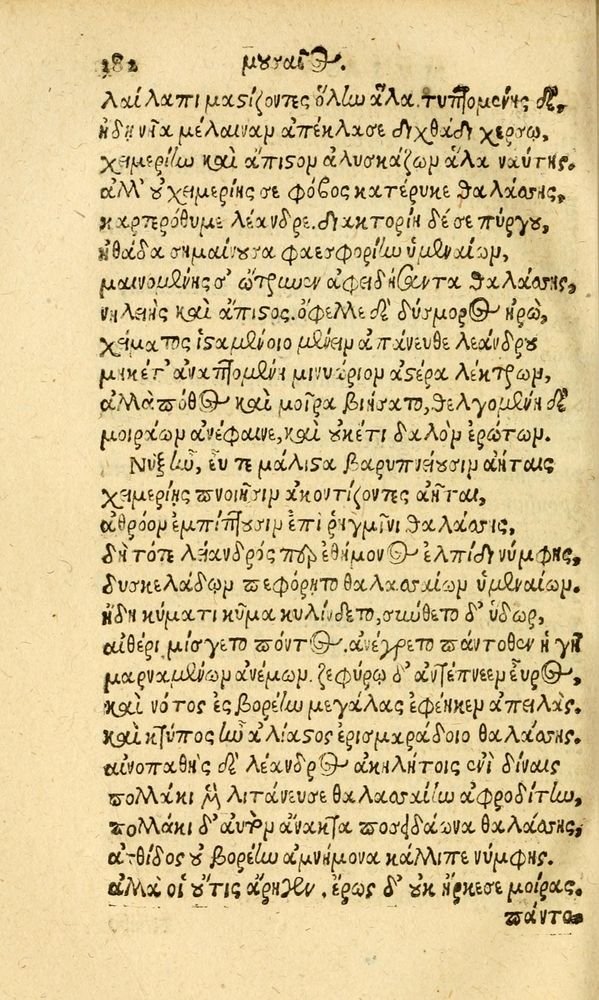 182 μουσαίου.
λαίλαπι μαστίζοντες ὅλην ἅλα. τυπτομένης δὲ,
ἤδη νῆα μέλαιναν ἀπέκλασε διχθάδι χέρσῳ,
χειμερίην καὶ ἄπιστον ἀλυσκάζων ἅλα ναύτης.
ἀλλ' οὐ χειμερίης σε φόβος κατέρυκε θαλάσσης,
καρτερόθυμε λέανδρε. διακτορίη δέ σε πύργου,
ἠθάδα σημαίνουσα φαεσφορίην ὑμεναίων,
μαινομένης σ' ὤτρυνεν ἀφειδήσαντα θαλάσσης,
νηλειὴς καὶ ἄπιστος. ὄφελλε δὲ δύσμορος ἡρὼ,
χείματος ἱσταμένοιο μένειν ἀπάνευθε λεάνδρου
μηκέτ' ἀναπτομένη μινυώριον ἀστέρα λέκτρων,
ἀλλὰ πόθος καὶ μοῖρα βιήσατο, θελγομένη δὲ
μοιράων ἀνέφαινε, καὶ οὐκέτι δαλὸν ἐρώτων.
Νὺξ ἦν, εὖ τε μάλιστα βαρυπνείουσιν ἀήταις
χειμερίης πνοιῇσιν ἀκοντίζοντες ἀῆται,
ἀθρόον ἐμπίπτουσιν ἐπὶ ῥηγμῖνι θαλάσσης,
δὴ τότε λέιανδρός περ ἐθήμονος ἐλπίδι νύμφης,
δυσκελάδων πεφόρητο θαλασσαίων ὑμεναίων.
ἤδη κύματι κῦμα κυλίνδετο, σύγχυτο δ' ὕδωρ,
αἰθέρι μίσγετο πόντος. ἀνέγρετο πάντοθεν ἠχὴ
μαρναμένων ἀνέμων. ζεφύρῳ δ' ἀντέπνεεν εὖρος,
καὶ νότος ἐς βορέην μεγάλας ἐφέηκεν ἀπειλάς.
καὶ κτύπος ἦν ἀλίαστος ἐρισμαράδοιο θαλάσσης.
αἰνοπαθὴς δὲ λέανδρος ἀκηλήτοις ἐνὶ δίναις
πολλάκι μὲν λιτάνευσε θαλασσαίην ἀφροδίτην,
πολλάκι δ' αὐτὸν ἄνακτα ποσειδάωνα θαλάσσης,
ἀτθίδος οὐ βορέην ἀμνήμονα κάλλιπε νύμφης.
ἀλλά οἱ οὔτις ἄρηγεν, ἔρως δ' οὐκ ἤρκεσε μοίρας.
πάντο.